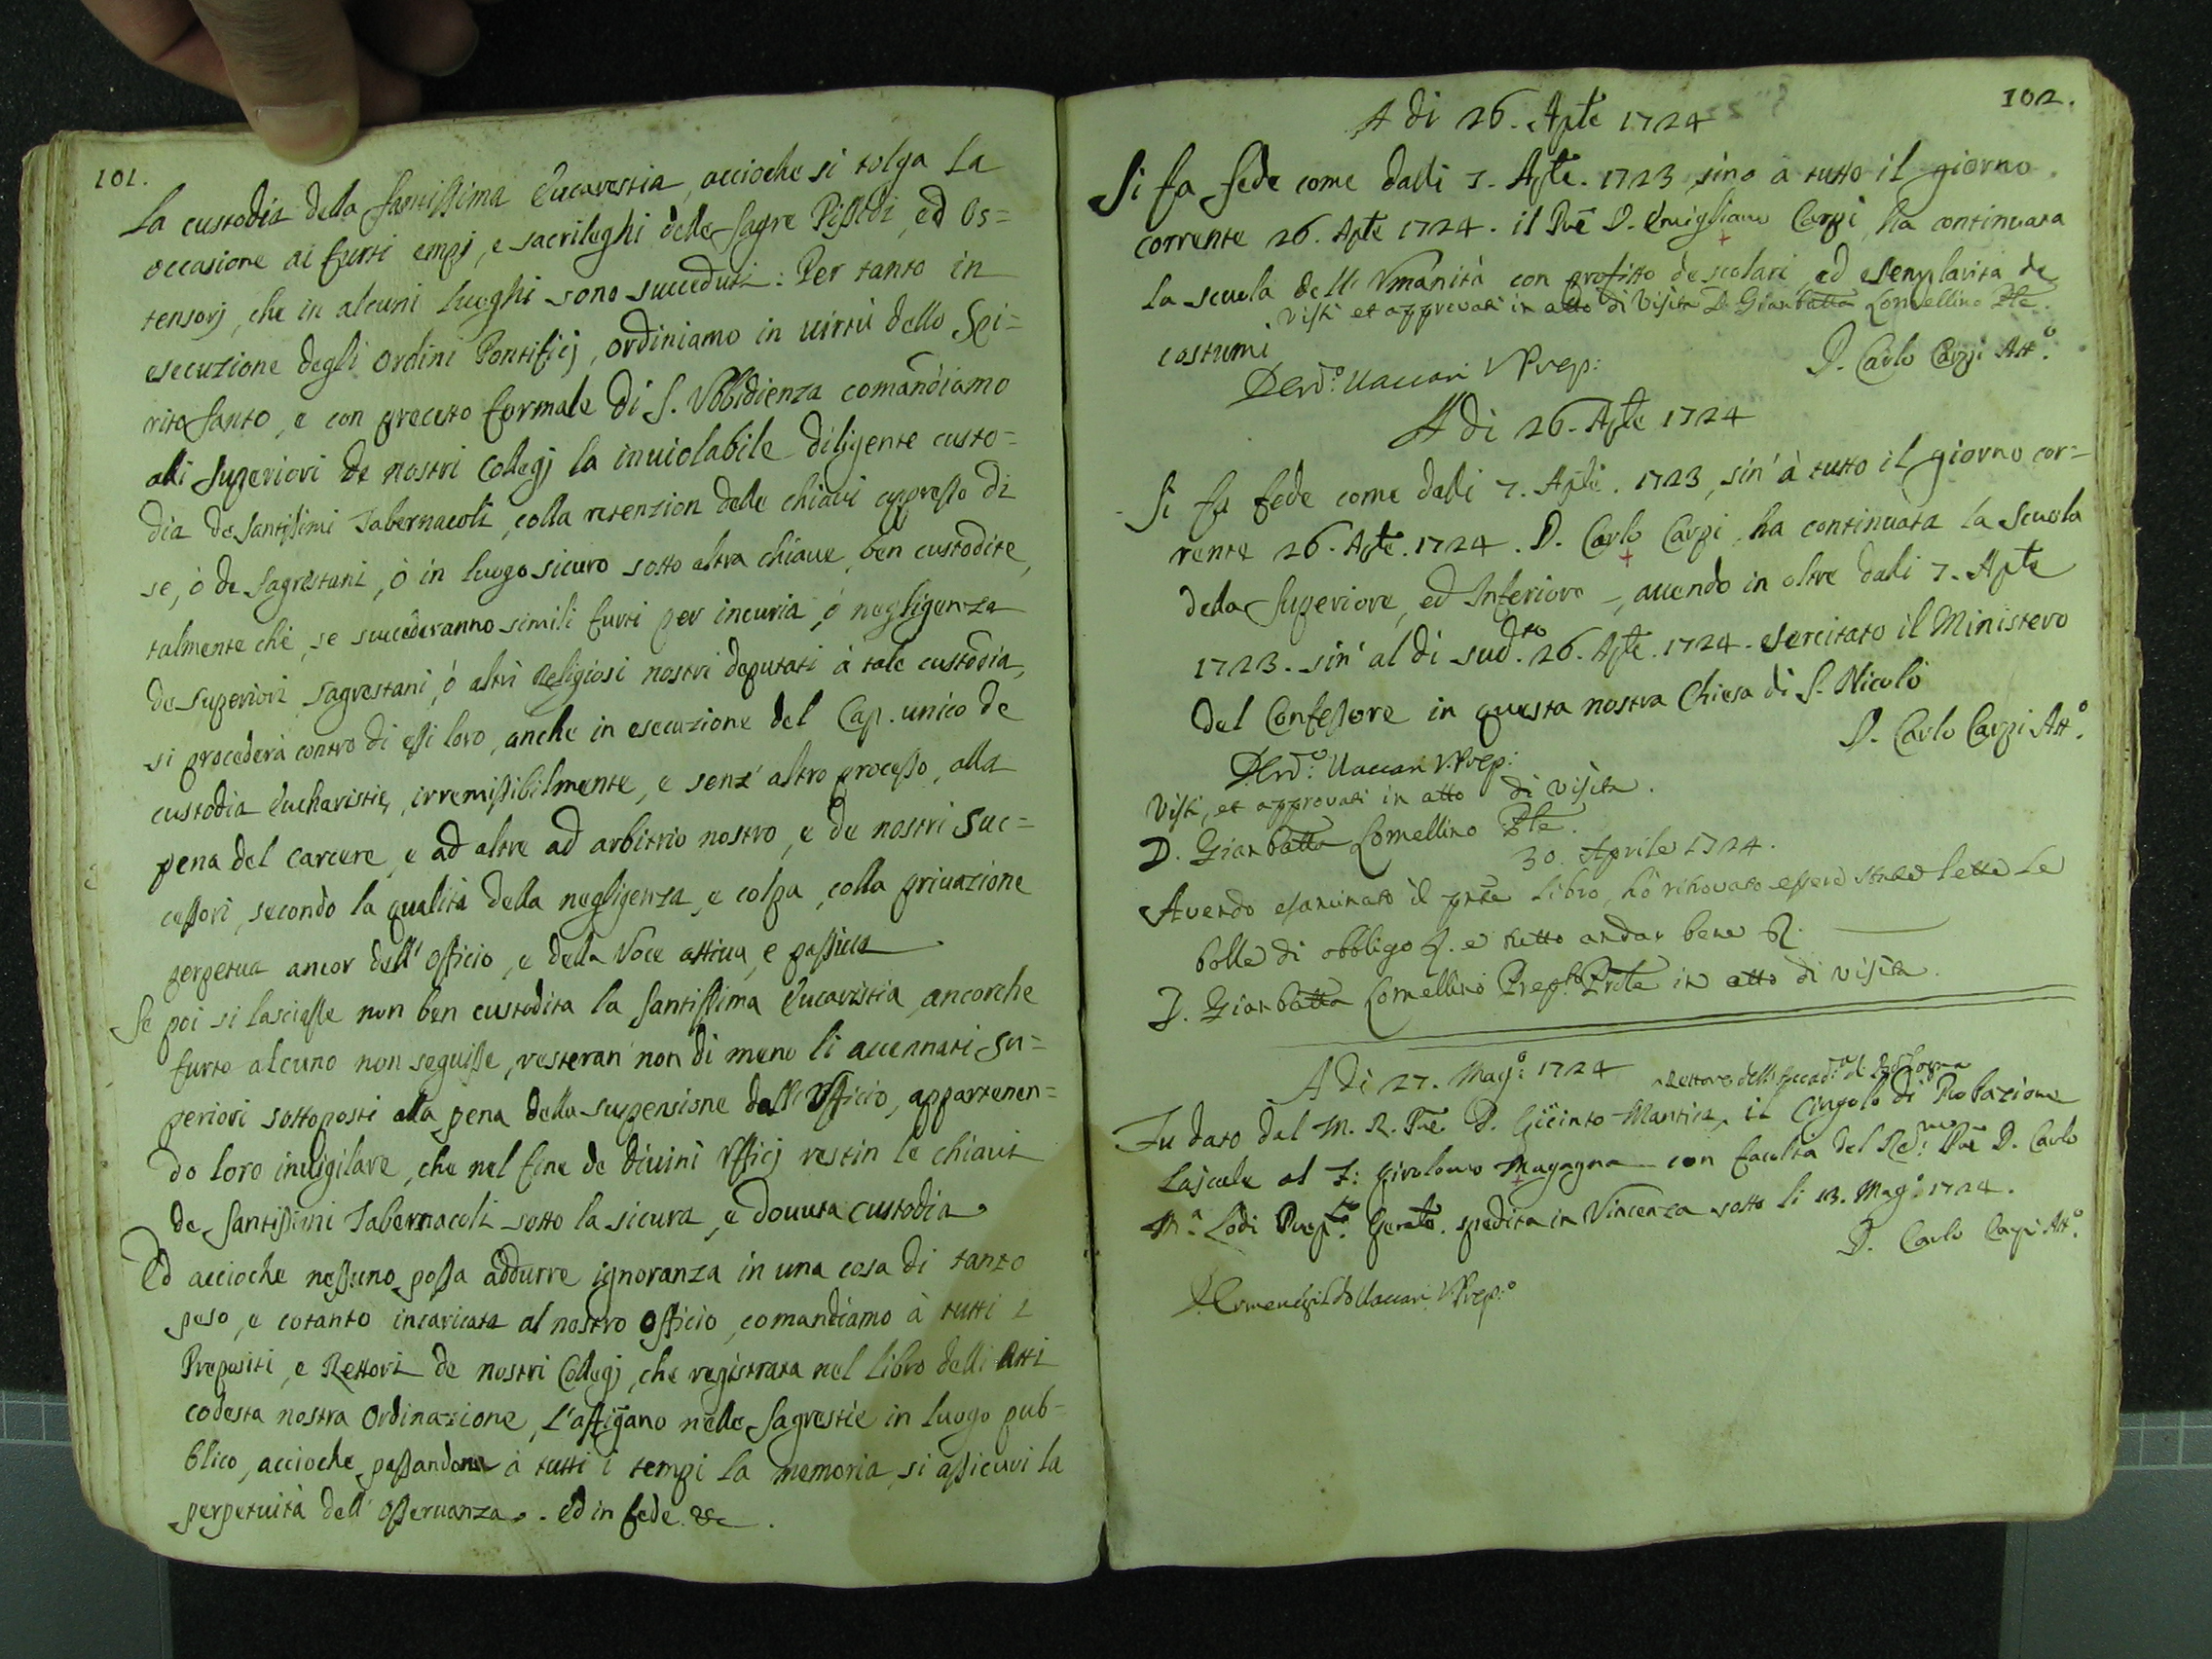 101.
La custodia della Santissima Eucarestia, accioche si tolga la
occasione ai furti empj, e sacrileghi delle Sagre Pissidi, ed Os=
tensorj, che in alcuni luoghi sono succeduti: Per tanto in
esecuzione degli ordini Pontificj, ordiniamo in uirtù dello Spi=
rito Santo, e con preceto formale di S. Vbbidienza comandiamo
alli Superiori de nostri Collegj la inuiolabile diligente custo=
dia de Santissimi Tabernacoli, colla retenzion delle chiaui appresso di
se, ò de Sagrestani, ò in luogo sicuro sotto altra chiaue, ben custodite,
talmente che, se succederanno simili furti per incuria, ò negligenza
de Superiori Sagrestani, ò altri Religiosi nostri deputati à tale custodia,
si procederà contro di essi loro, anche in esecuzione del Cap. unico de
custodia Eucharistie, irremissibilmente, e senz' altro processo, alla
pena del carcere, e ad altre ad arbitrio nostro, e de nostri suc=
cessori, secondo la qualità della negligenza, e colpa, colla priuazione
perpetua ancor dell' Officio, e della Voce attiua, e passiua.
Se poi si lasciasse non ben custodita la Santissima Eucaristia, ancorche
furto alcuno non seguisse, resteran' non di meno li accennati Su=
periori sottoposti alla pena della suspensione dell' Vfficio, appartenen=
do loro inuigilare, che nel fine de diuini Vfficj restin le chiaui
de Santissimi Tabernacoli sotto la sicura, e douuta custodia.
Ed accioche nessuno possa addurre ignoranza in una cosa di tanto
peso, e cotanto incaricata al nostro Officio, comandiamo à tutti i
Prepositi, e Rettori de nostri Collegj, che registrata nel libro delli Atti
codesta nostra Ordinazione, l'affigano nelle Sagrestie in luogo pub=
blico, accioche passandone à tutti i tempi la memoria, si assicuri la
perpetuità dell' Osseruanza. Ed in fede &c.
102.
A di 26. Aple 1724
Si fa fede come dalli 7. Aple. 1723 sino à tutto il giorno
corrente 26. Aple 1724. il Pre D. Emigliano Carpi, ha continuata
la scuola dell' Vmanità con profitto de scolari, ed esemplarità de
Visti et approuati in atto di Visita D. Gianbatta Lomellino Ple.
costumi
D. Carlo Carpi Att.º
D Erd.º Uaccari VPrep:
A di 26. Aple 1724
Si fa fede come dalli 7. Aple. 1723, sin' à tutto il giorno cor=
rente 26. Aple. 1724. D. Carlo Carpi, ha continuata la scuola
della Superiore, ed Inferiore, auendo in oltre dalli 7. Aple
1723. sin' al di sud.to 26. Aple. 1724. esercitato il Ministero
del Confessore in questa nostra Chiesa di S. Nicolò
D. Carlo Carpi Att.º
D Erd.º Uaccari V.Prep:
Visti, et approuati in atto di visita.
D. Gianbatta Lomellino Ple.
30. Aprile 1724.
Auendo esaminato il prñte libro, hò ritrouato essere state lette le
bolle di obbligo e tutto andar bene
D. Gianbatta Lomellino Prep.to Prle in atto di visita.
A di 27. Magº 1724
Rettore dell' Accad.a di Bologna
Fu dato dal M. R. Pre D. Giacinto Mantica, il Cingolo di Probazione
Laicale al F: Girolamo Magagna con facoltà del Re.mo Pre D. Carlo
M.a Lodi Prep.to Genle. spedita in Vincenza sotto li 13. Magº 1724.
D. Carlo Carpi Att.º
D Ermenegildo Uaccari VPrep.º